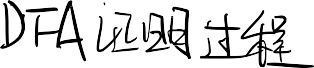 DFA证明过程